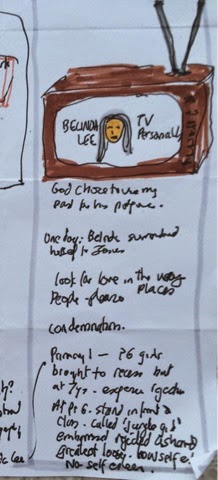 BELINDA LEE
TV Personality
God chose to use my
past for his purpose.
One day. Belinda surrendered
herself to Jesus
look for love in the wrong
places
People-please
condemnation.
Primary 1 – 26 girls
brought to recess but
at 7yr. experience rejection
At Pr 6. stand in front
class. called
embarrassed rejected ashamed
greatest loser. low self e.
No self esteem.